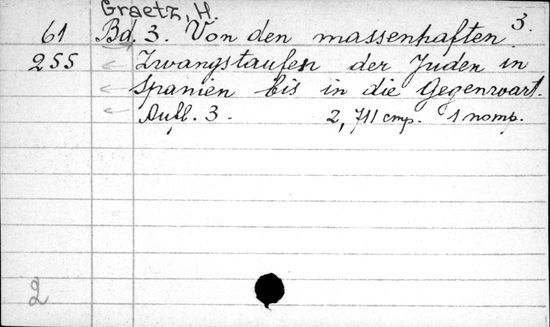 Graetz, H.
3.
61 Bd. 3. Von den massenhaften
255 Zwangstaufen der Juden in
Spanien bis in die Gegenwart.
Aufl. 3. 2, 711 стр. 1 портр.
2